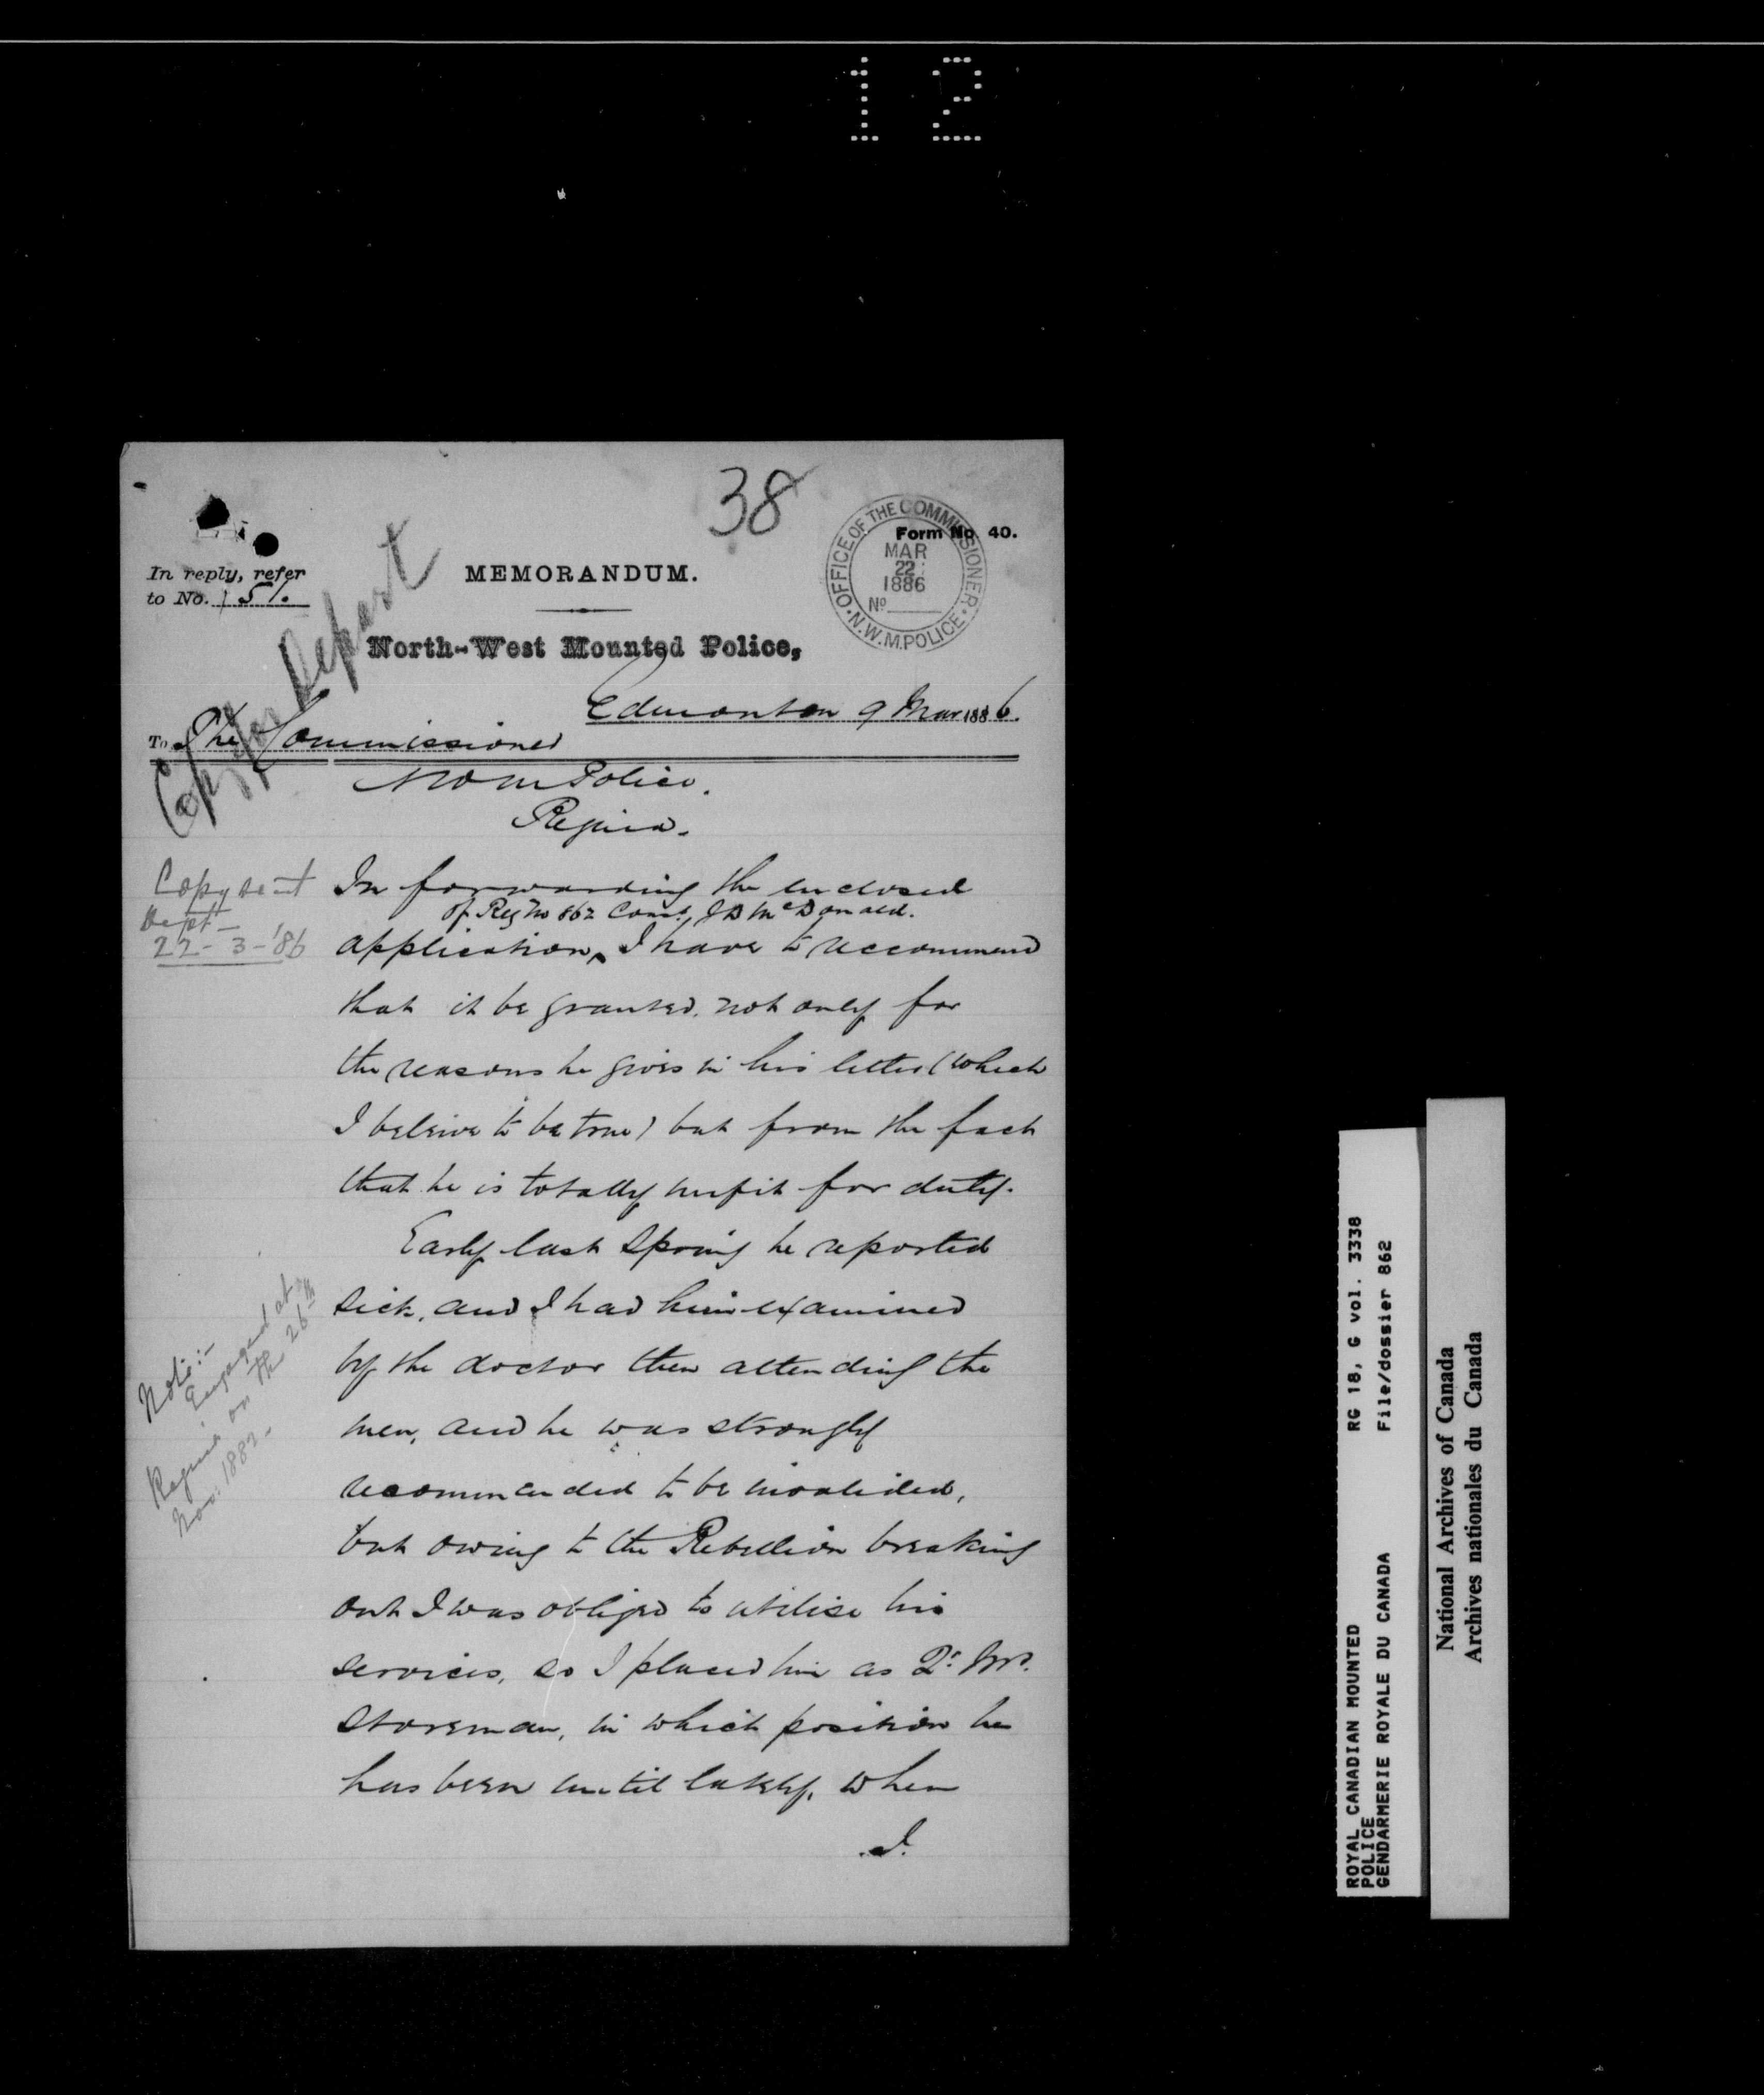 12
38
Form No. 40.
OFFICE OF THE COMMISSIONER
MAR
22
1886
No
N.W.M. POLICE
In reply, refer
to No. 151.
MEMORANDUM.
North-West Mounted Police,
Copy for Depart
Edmonton 9 Mar 1886.
To The Commissioner
NWM Police.
Regina.
Copy sent
Dept -
22-3-'86
In forwarding the enclosed
of Reg No 862 Const. J B McDonald.
application, I have to recommend
that it be granted. not only for
the reasons he gives in his letter (which
I beleive to be true) but from the fact
that he is totally unfit for duty.
Early last Spring he reported
sick, and I had him examined
by the doctor then attending the
men, and he was strongly
recommended to be invalided,
but owing to the Rebellion breaking
out I was obliged to utilise his
services, so I placed him as Qr Mr.
Storeman, in which position he
has been until lately, when
I.
Note:-
Engaged at
Regina on the 26th
Nov. 1882.-
ROYAL CANADIAN MOUNTED
POLICE
GENDARMERIE ROYALE DU CANADA
RG 18, G vol. 3338
File/dossier 862
National Archives of Canada
Archives nationales du Canada